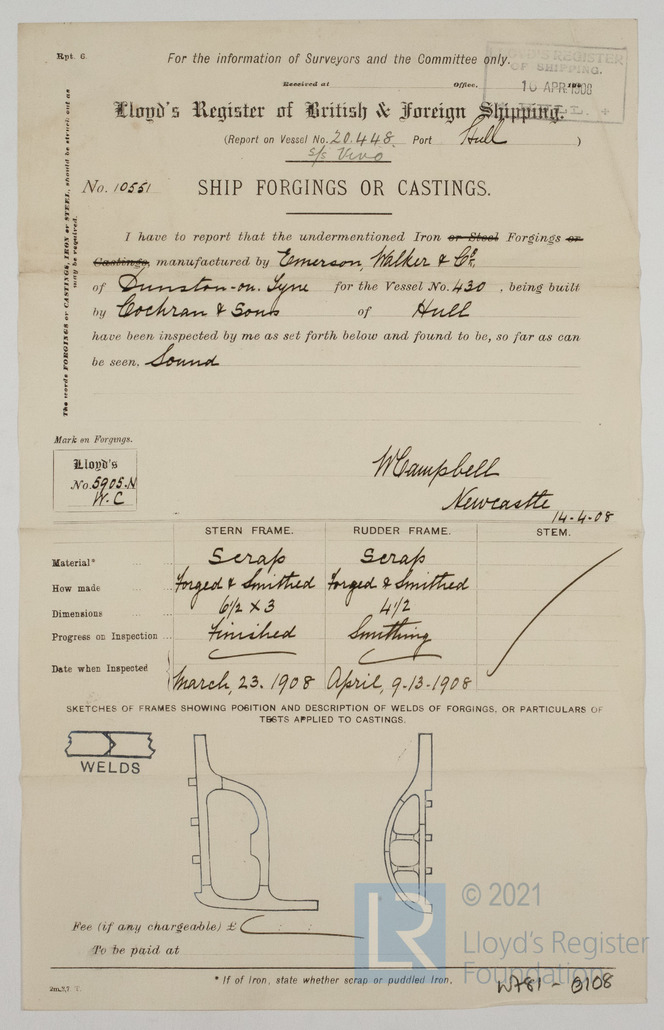 Rpt. 6.
For the information of Surveyors and the Committee only.
Received at Office,
LLOYD'S REGISTER
OF SHIPPING.
10 APR 1908
HULL.
Lloyd's Register of British & Foreign Shipping.
(Report on Vessel No. 20.448. Port Hull )
S/S Vivo
No. 10551
SHIP FORGINGS OR CASTINGS.
The words FORGINGS or CASTINGS, IRON or STEEL, should be struck out as
may be required.
I have to report that the undermentioned Iron or Steel Forgings or
Castings, manufactured by Emerson, Walker & Co.,
of Dunston-on-Tyne for the Vessel No. 430 , being built
by Cochran & Sons of Hull
have been inspected by me as set forth below and found to be, so far as can
be seen, Sound
Mark on Forgings.
Lloyd's
No. 5905.N
W.C
WCampbell
Newcastle
14-4-08
STERN FRAME. RUDDER FRAME. STEM.
Material* Scrap Scrap
How made Forged & Smithed Forged & Smithed
Dimensions 6½ x 3 4½
Progress on Inspection Finished Smithing
Date when Inspected March, 23. 1908 April, 9-13-1908
SKETCHES OF FRAMES SHOWING POSITION AND DESCRIPTION OF WELDS OF FORGINGS, OR PARTICULARS OF
TESTS APPLIED TO CASTINGS.
WELDS
Fee (if any chargeable) £
To be paid at
LR
© 2021
Lloyd's Register
Foundation
* If of Iron, state whether scrap or puddled Iron.
W781-0108